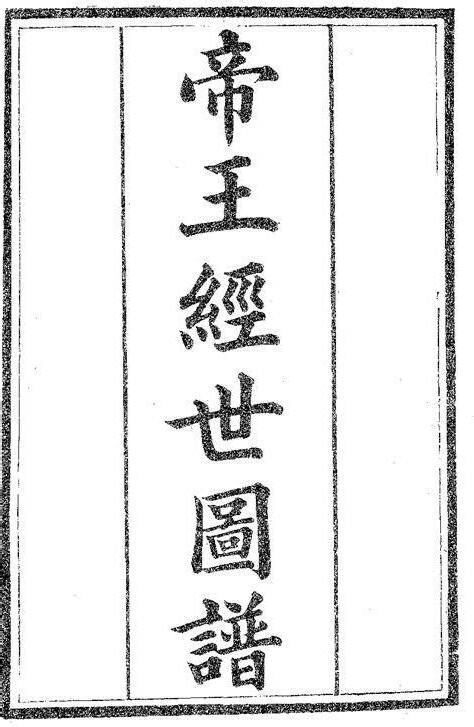 帝王經世圖譜